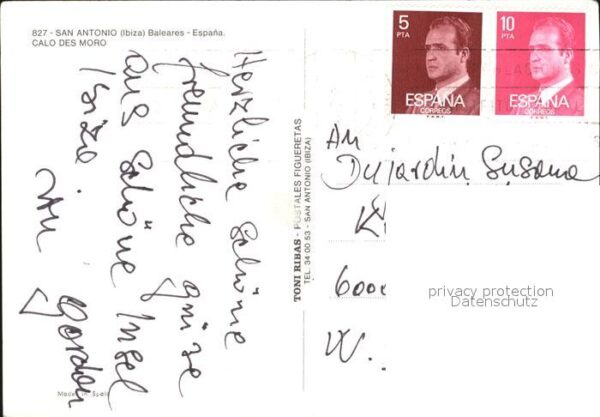 827 - SAN ANTONIO (Ibiza) Baleares - España.
CALO DES MORO
Herzliche Schöne
freundliche grüße
aus Schöne Insel
Ibiza.
An
Gordon
Made in Spain
TONI RIBAS - POSTALES FIGUERETAS
TEL. 34 00 53 - SAN ANTONIO (IBIZA)
5
PTA
ESPAÑA
CORREOS
10
PTA
ESPAÑA
CORREOS
An
Dujardin Susana
6000
W.
privacy protection
Datenschutz